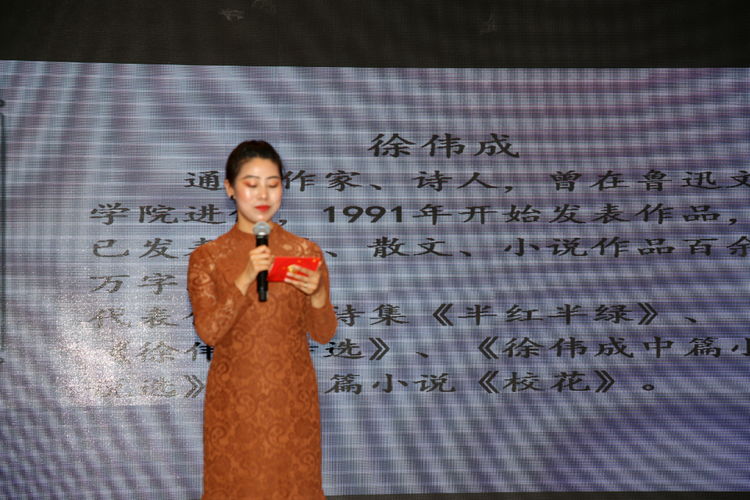 徐伟成
通 作家、诗人，曾在鲁迅文
学院进 ，1991年开始发表作品，
已发表 、散文、小说作品百余
万字
代表 诗集《半红半绿》、
《徐伟 选》、《徐伟成中篇小
选》 篇小说《校花》。